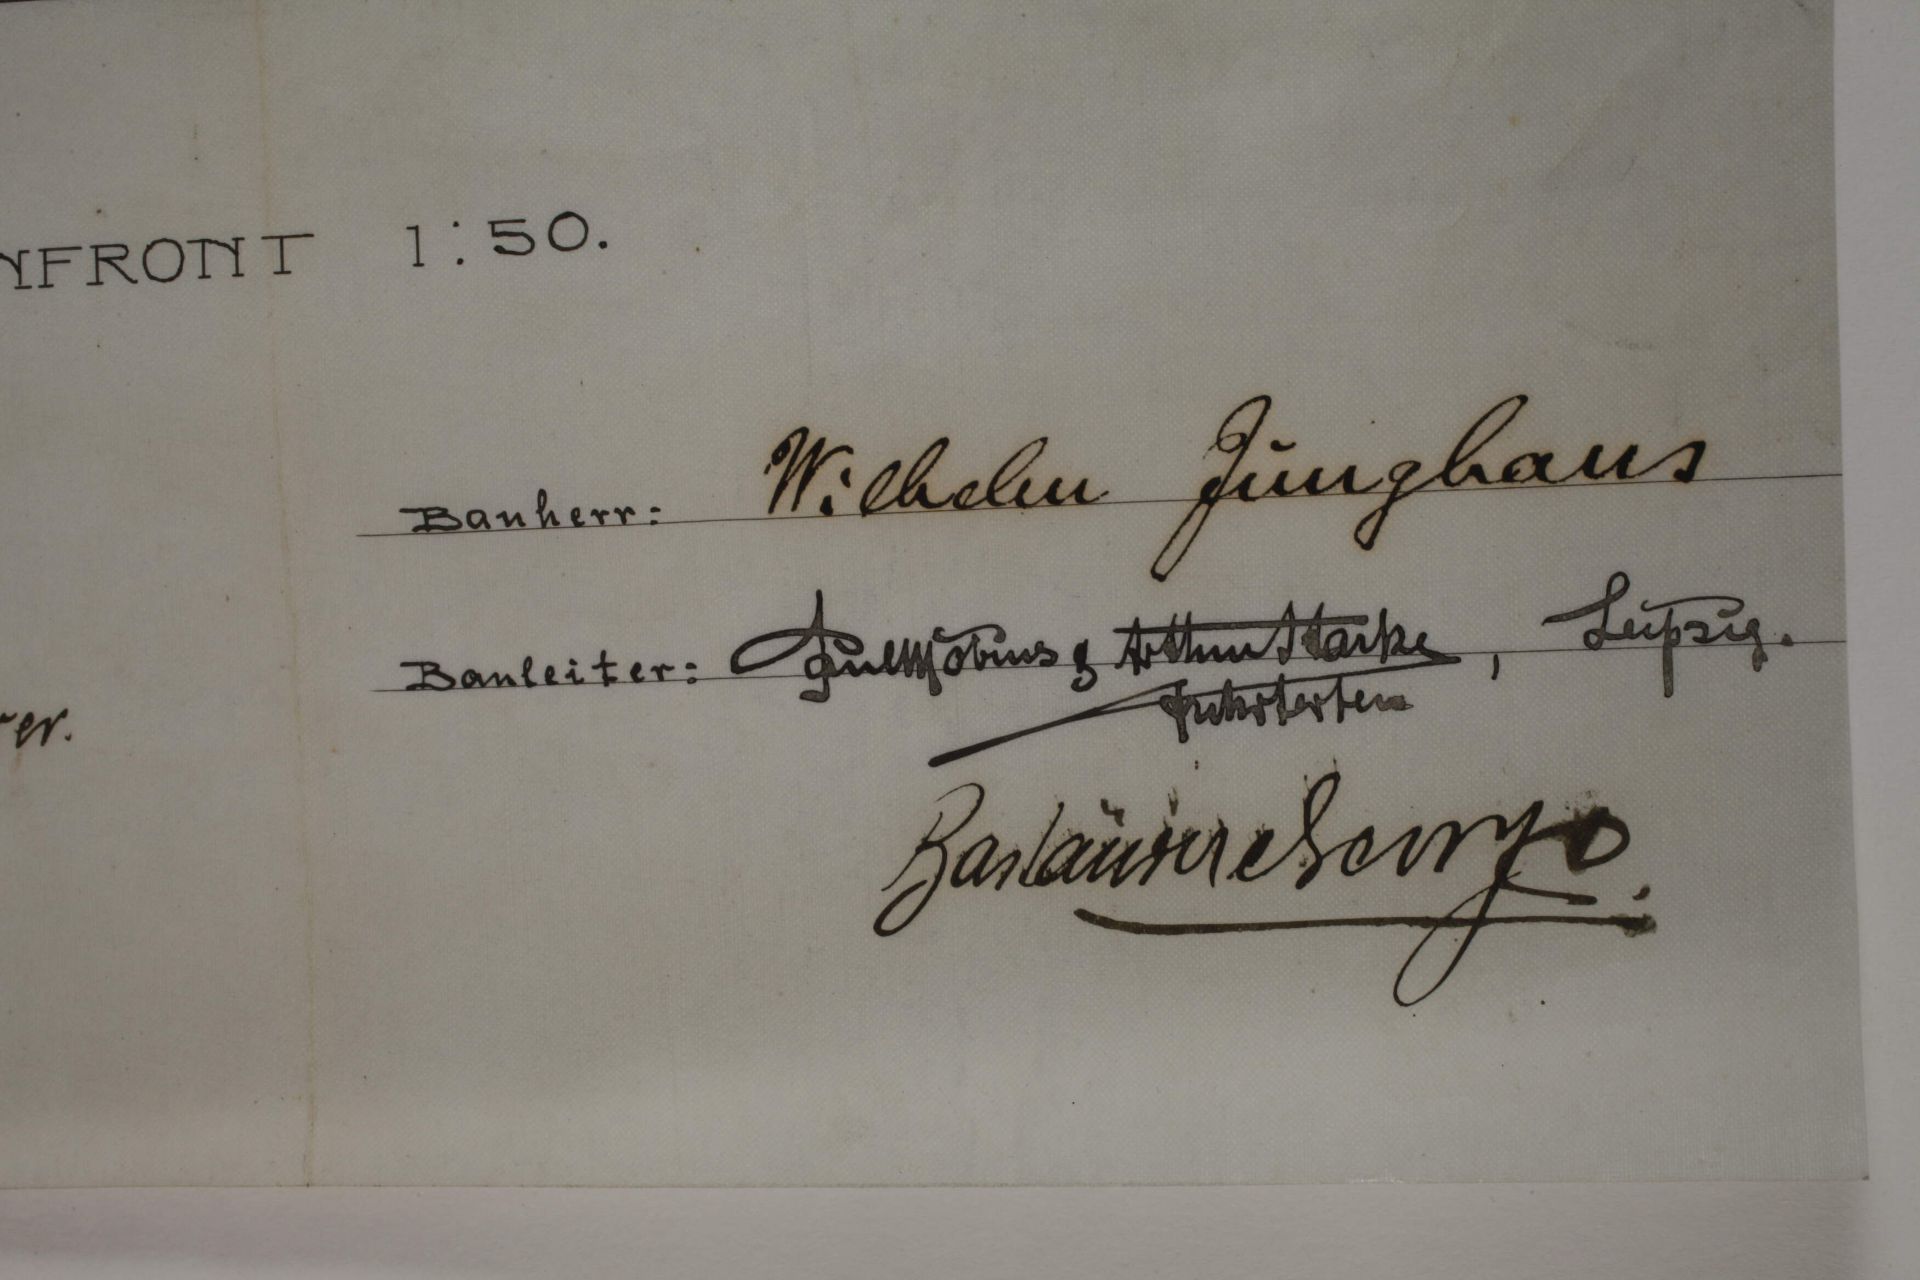 NFRONT 1:50.
Bauherr: Wilhelm Junghans
Bauleiter: Paul Möbius & Arthur Starke, Leipzig.
Architekten
er.